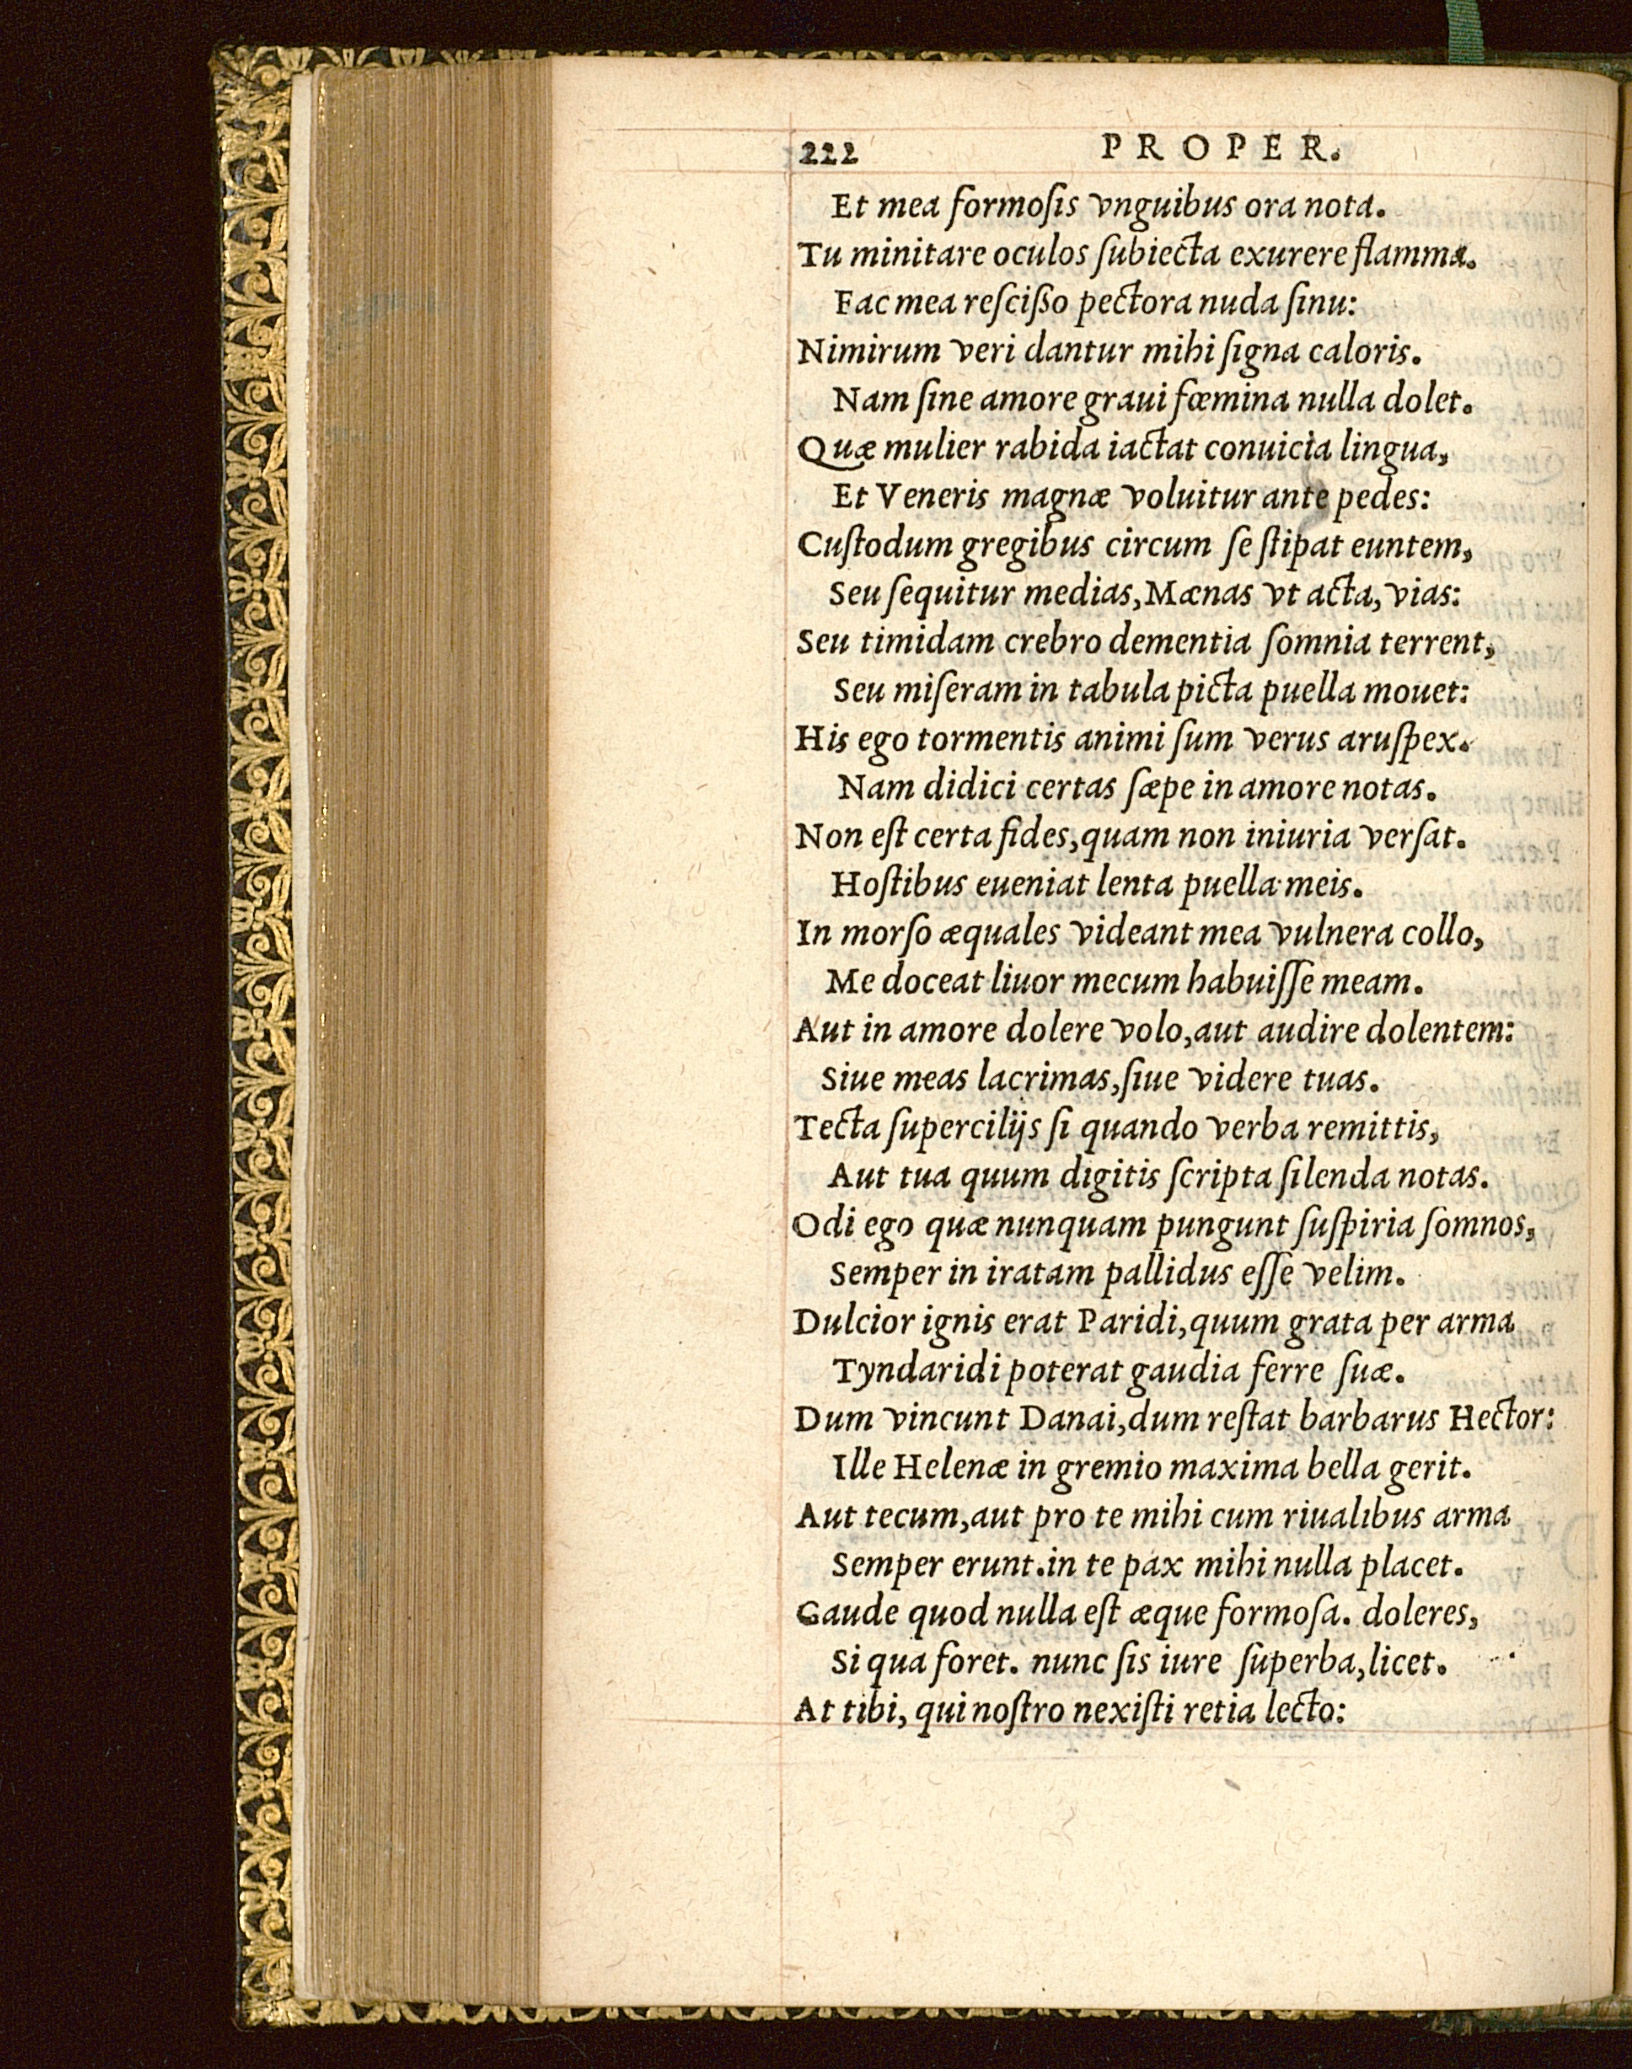 222 PROPER.
Et mea formoſis vnguibus ora nota.
Tu minitare oculos ſubiecta exurere flamma.
Fac mea reſciſſo pectora nuda ſinu:
Nimirum veri dantur mihi ſigna caloris.
Nam ſine amore graui fœmina nulla dolet.
Quæ mulier rabida iactat conuicia lingua,
Et Veneris magnæ voluitur ante pedes:
Cuſtodum gregibus circum ſe ſtipat euntem,
Seu ſequitur medias, Mænas vt acta, vias:
Seu timidam crebro dementia ſomnia terrent,
Seu miſeram in tabula picta puella mouet:
His ego tormentis animi ſum verus aruſpex.
Nam didici certas ſæpe in amore notas.
Non eſt certa fides, quam non iniuria verſat.
Hoſtibus eueniat lenta puella meis.
In morſo æquales videant mea vulnera collo,
Me doceat liuor mecum habuiſſe meam.
Aut in amore dolere volo, aut audire dolentem:
Siue meas lacrimas, ſiue videre tuas.
Tecta ſupercilijs ſi quando verba remittis,
Aut tua quum digitis ſcripta ſilenda notas.
Odi ego quæ nunquam pungunt ſuſpiria ſomnos,
Semper in iratam pallidus eſſe velim.
Dulcior ignis erat Paridi, quum grata per arma
Tyndaridi poterat gaudia ferre ſuæ.
Dum vincunt Danai, dum reſtat barbarus Hector:
Ille Helenæ in gremio maxima bella gerit.
Aut tecum, aut pro te mihi cum riualibus arma
Semper erunt. in te pax mihi nulla placet.
Gaude quod nulla eſt æque formoſa. doleres,
Si qua foret. nunc ſis iure ſuperba, licet.
At tibi, qui noſtro nexiſti retia lecto: